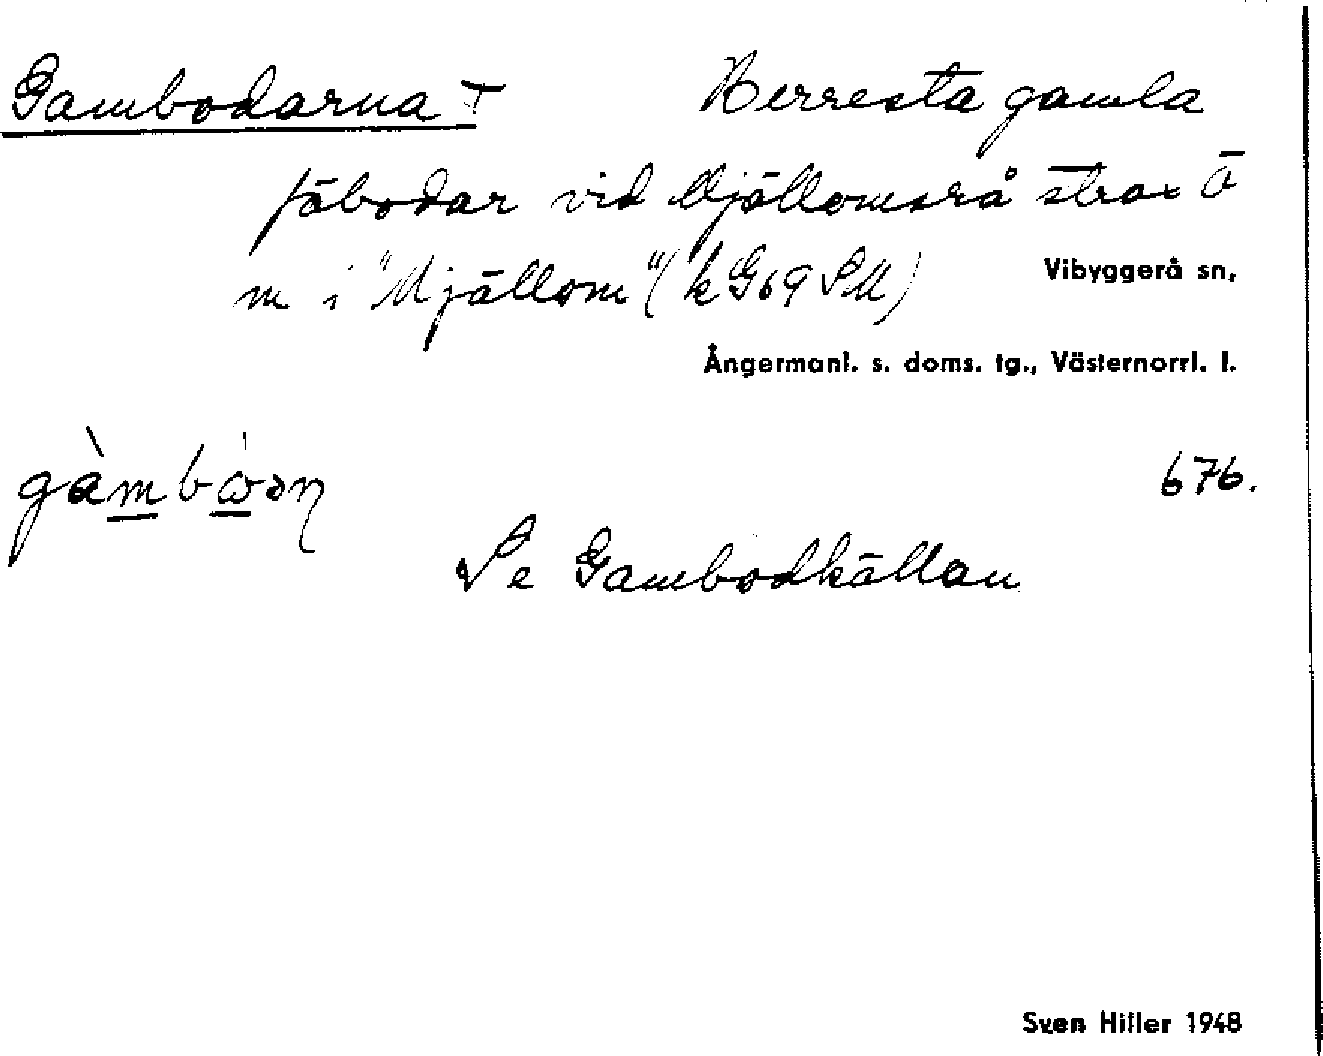 Gambodarna † Herresta gamla
fäbodar vid Mjällomsrå strax Ö
m i "Mjällom" (k G69 SM) Vibyggerå sn,
Ångermanl. s. doms. tg., Västernorrl. l.
gàmbὼən 676.
Se Gambodkällan
Sven Hiller 1948